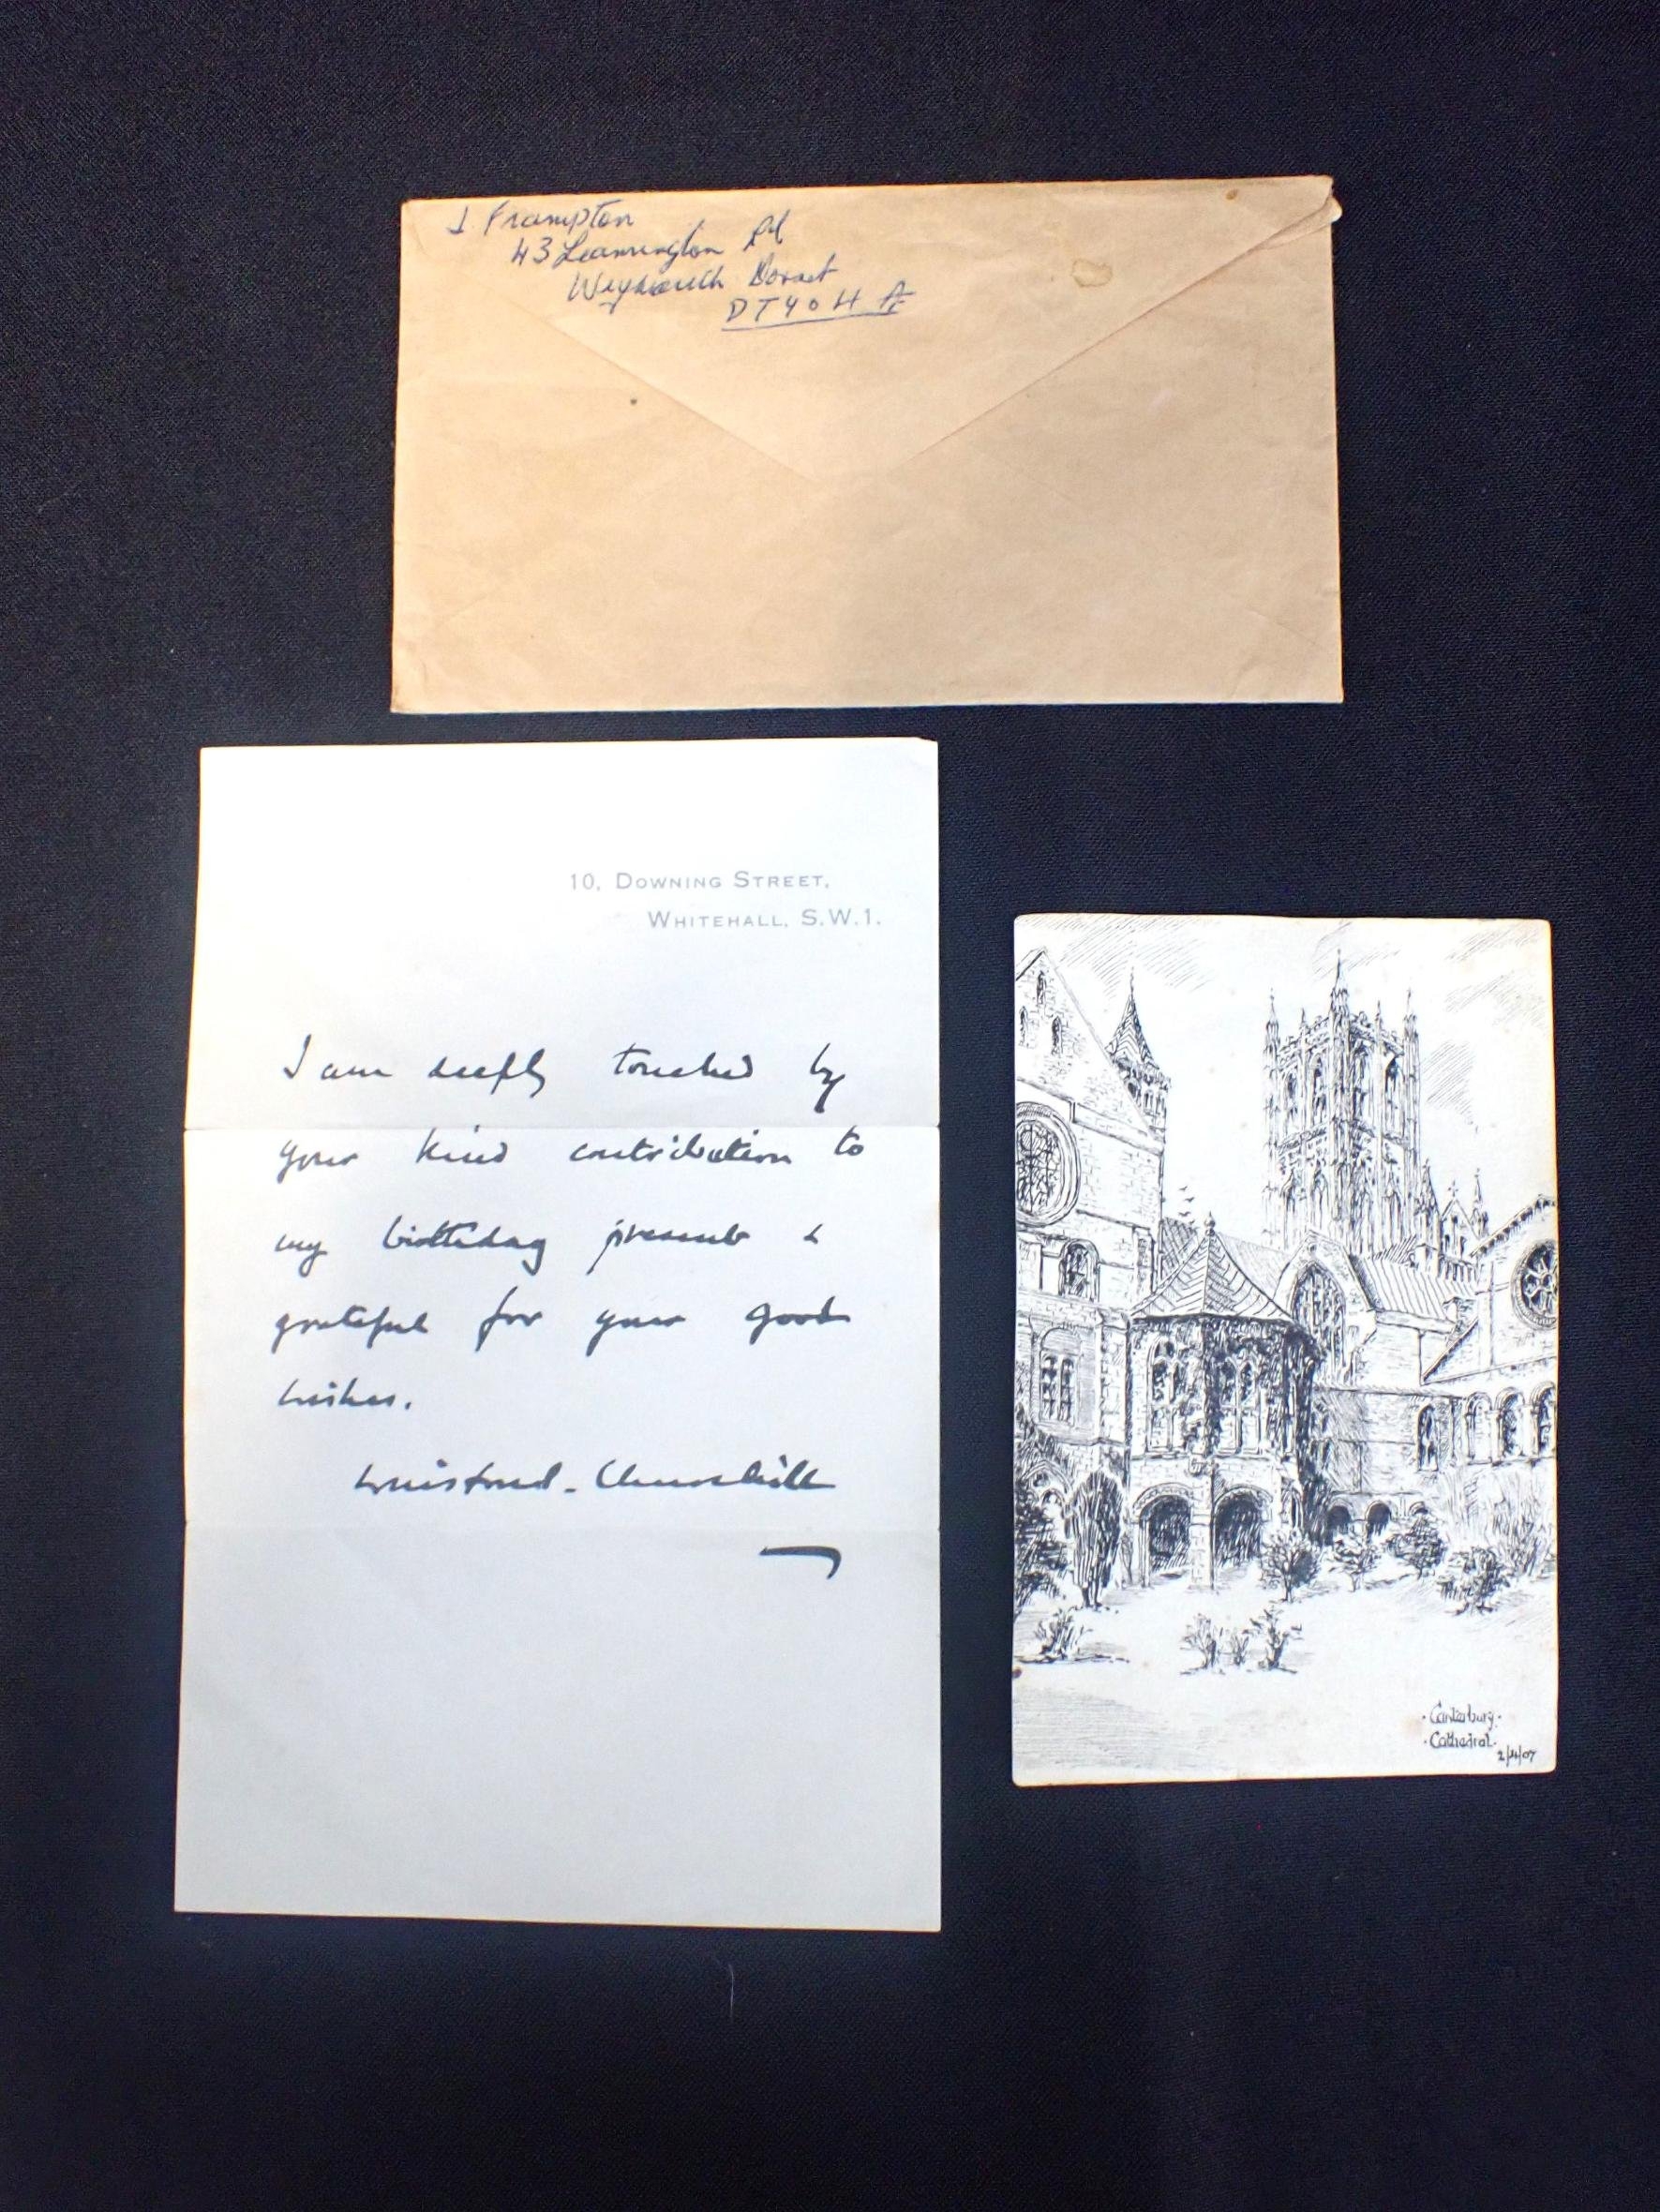 J Frampton
43 Leamington Rd
Weymouth Dorset
DT4 0HA
10, DOWNING STREET,
WHITEHALL, S.W.1.
I am deeply touched by
your kind contribution to
my birthday present &
grateful for your good
wishes.
Winston S. Churchill
·Canterbury·
·Cathedral·
2/4/07